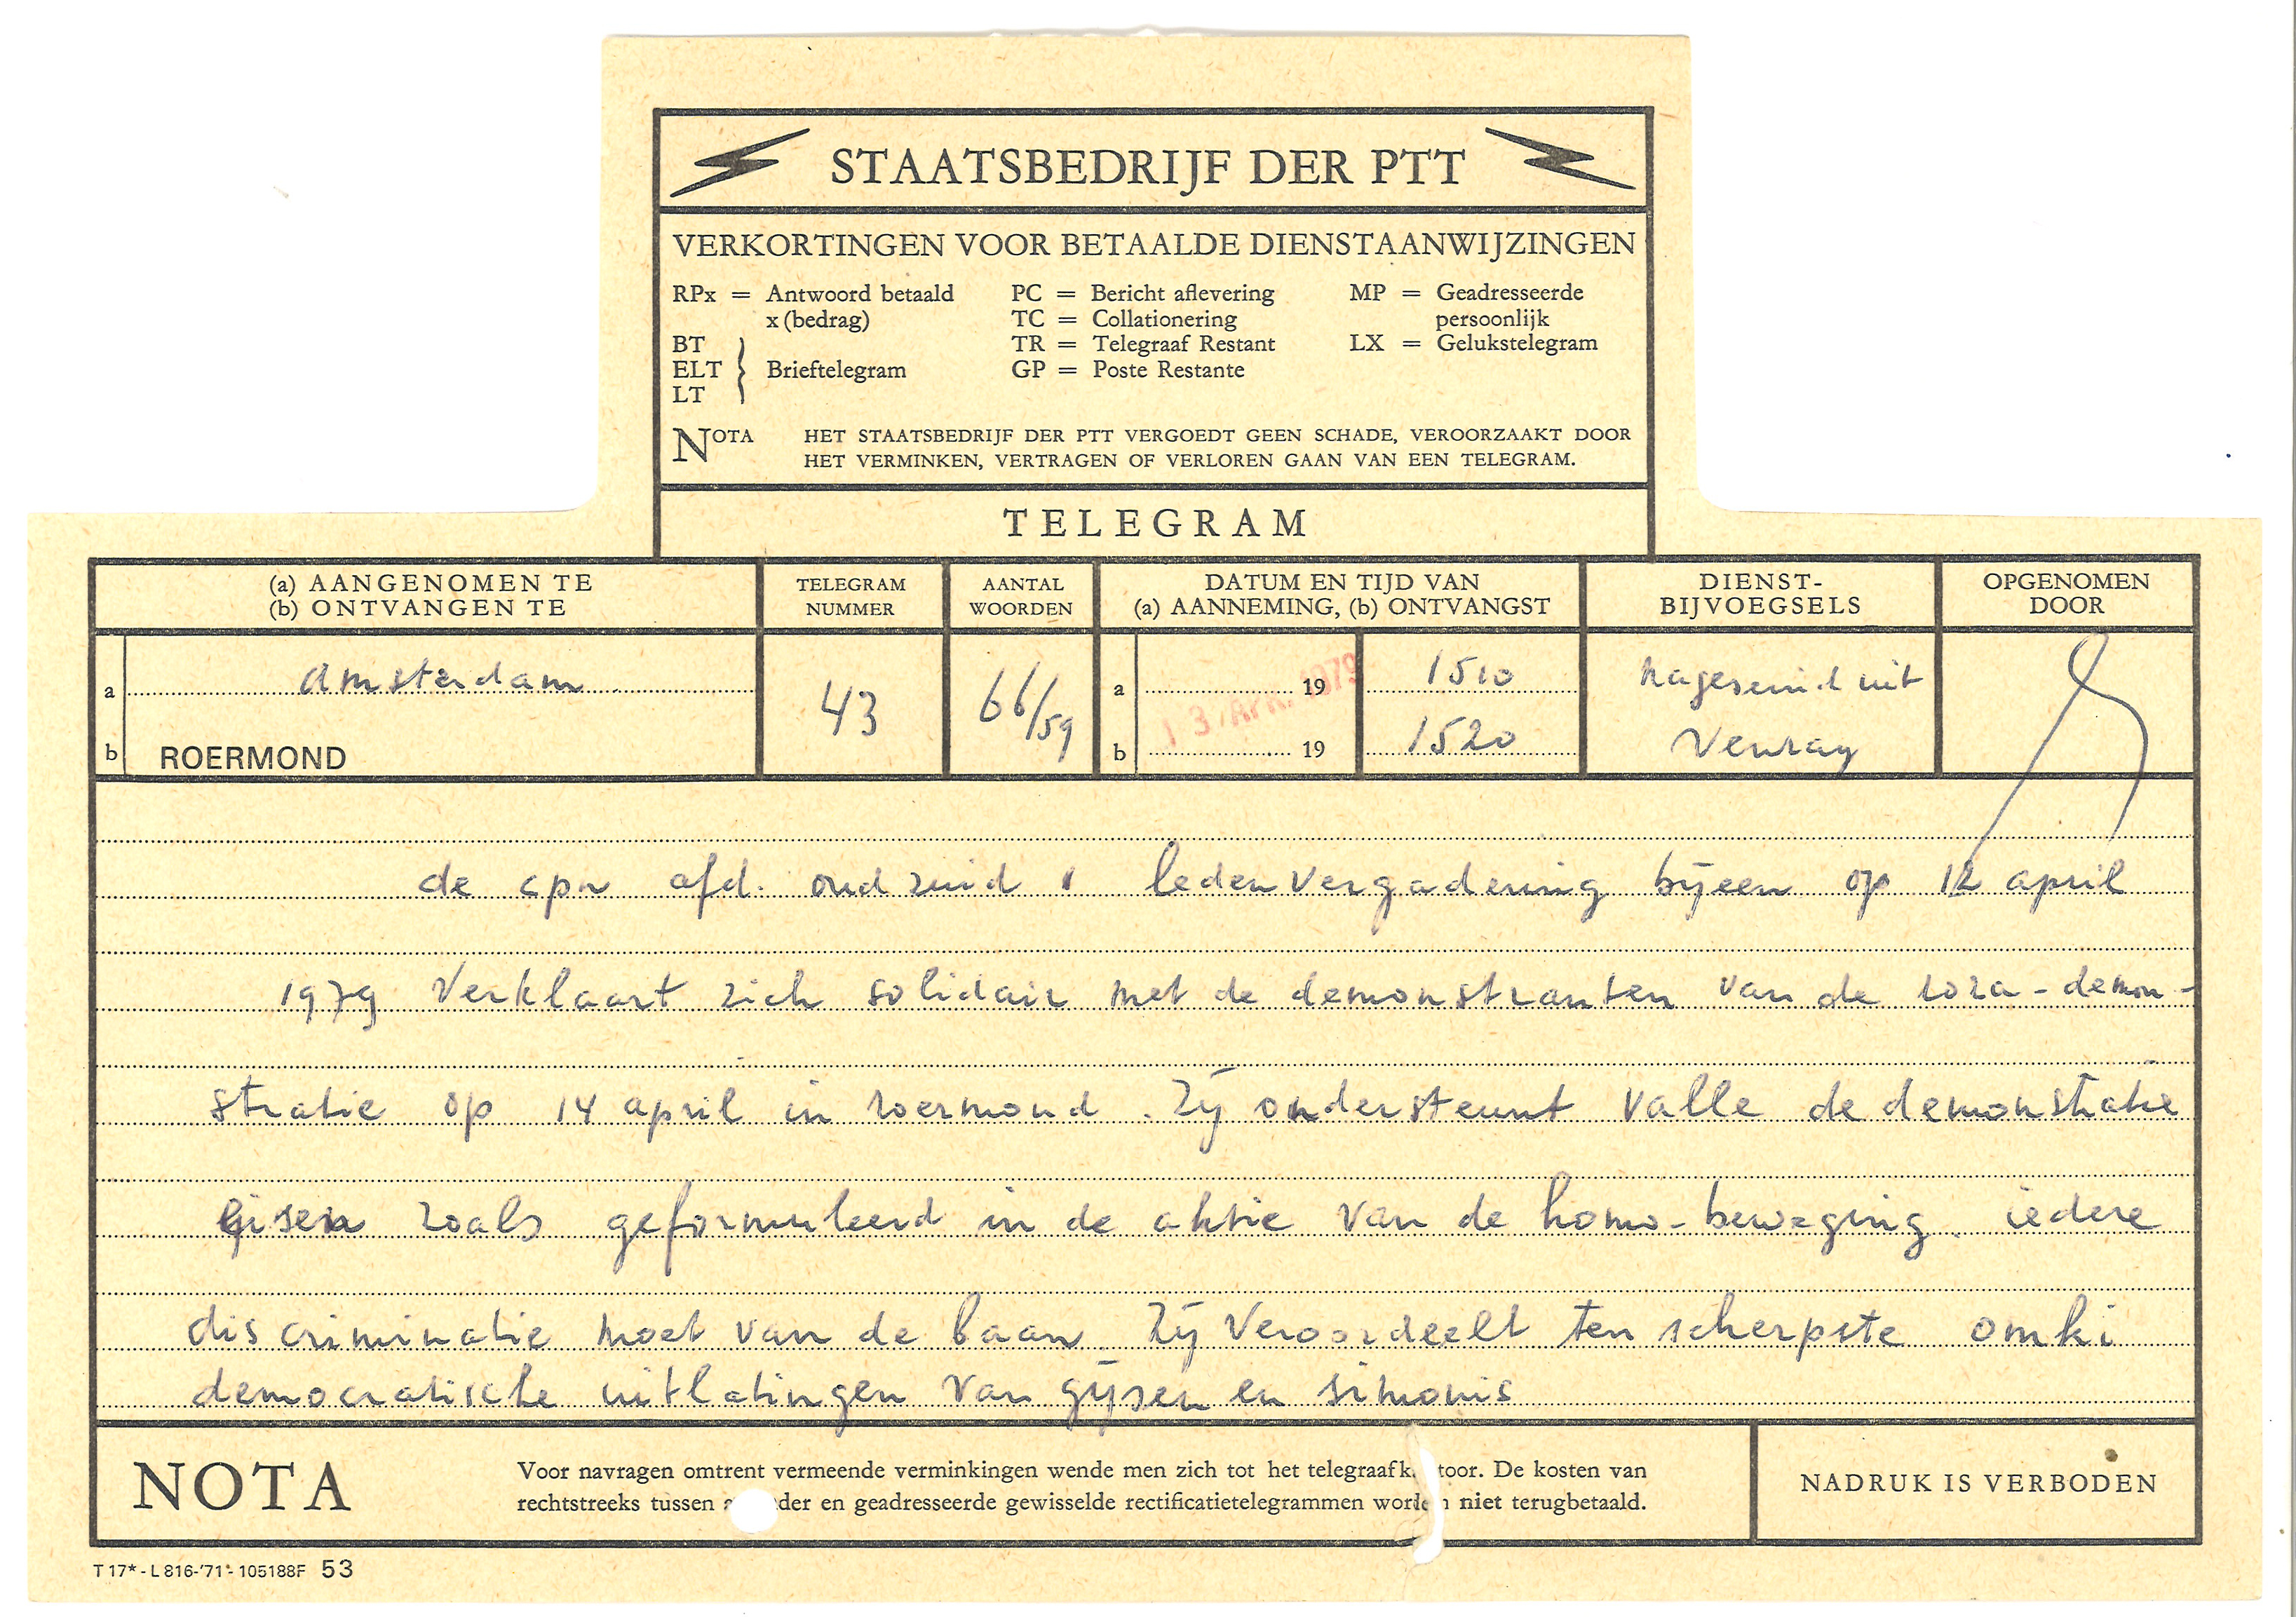 STAATSBEDRIJF DER PTT
VERKORTINGEN VOOR BETAALDE DIENSTAANWIJZINGEN
RPx = Antwoord betaald x (bedrag)
BT
ELT } Brieftelegram
LT
PC = Bericht aflevering
TC = Collationering
TR = Telegraaf Restant
GP = Poste Restante
MP = Geadresseerde persoonlijk
LX = Gelukstelegram
NOTA HET STAATSBEDRIJF DER PTT VERGOEDT GEEN SCHADE, VEROORZAAKT DOOR
HET VERMINKEN, VERTRAGEN OF VERLOREN GAAN VAN EEN TELEGRAM.
TELEGRAM
(a) AANGENOMEN TE
(b) ONTVANGEN TE
TELEGRAM NUMMER
AANTAL WOORDEN
DATUM EN TIJD VAN
(a) AANNEMING, (b) ONTVANGST
DIENST-
BIJVOEGSELS
OPGENOMEN DOOR
a Amsterdam
b ROERMOND
43
66/59
a 19 1510
13 APR. 1979
b 19 1520
nageseind uit
Venray
de cpn afd. oud zuid 1 ledenvergadering bijeen op 12 april
1979 verklaart zich solidair met de demonstranten van de roza-demon-
stratie op 14 april in roermond. Zij ondersteunt valle de demonstratie
eisen zoals geformuleerd in de aktie van de homo-beweging. iedere
discriminatie moet van de baan. Zij veroordeelt ten scherpste
democratische uitlatingen van gijsen en simonis
NOTA
Voor navragen omtrent vermeende verminkingen wende men zich tot het telegraafk toor. De kosten van
rechtstreeks tussen a der en geadresseerde gewisselde rectificatietelegrammen worden niet terugbetaald.
NADRUK IS VERBODEN
T 17* - L 816-'71 - 105188F 53